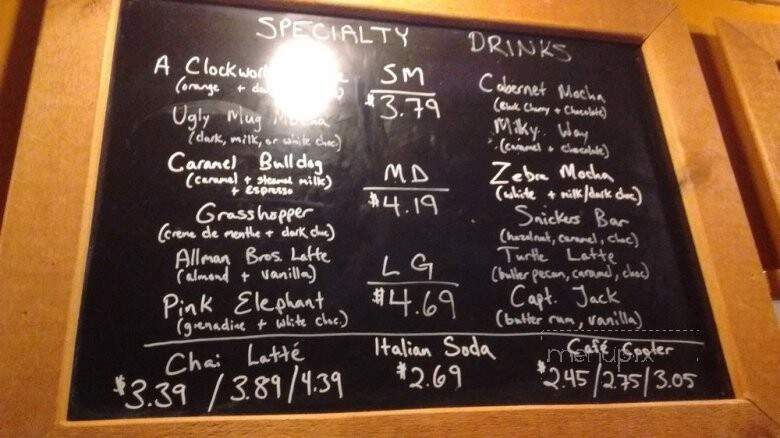 SPECIALTY DRINKS
A Clockwork
(orange +
Ugly Mug
(dark, milk, or white choc)
Caramel Bulldog
(caramel + steamed milk)
+ espresso
Grasshopper
(creme de menthe + dark choc)
Allman Bros. Latte
(almond + vanilla)
Pink Elephant
(grenadine + white choc.)
SM
$3.79
MD
$4.19
LG
$4.69
Cabernet Mocha
(Black Cherry + Chocolate)
Milky Way
(caramel + chocolate)
Zebra Mocha
(white + milk/dark choc)
Snickers Bar
(hazelnut, caramel, choc)
Turtle Latte
(butter pecan, caramel, choc)
Capt. Jack
(butter rum, vanilla)
Chai Latté
$3.39 / 3.89/4.39
Italian Soda
$2.69
Café Cooler
$2.45/2.75/3.05
menupix